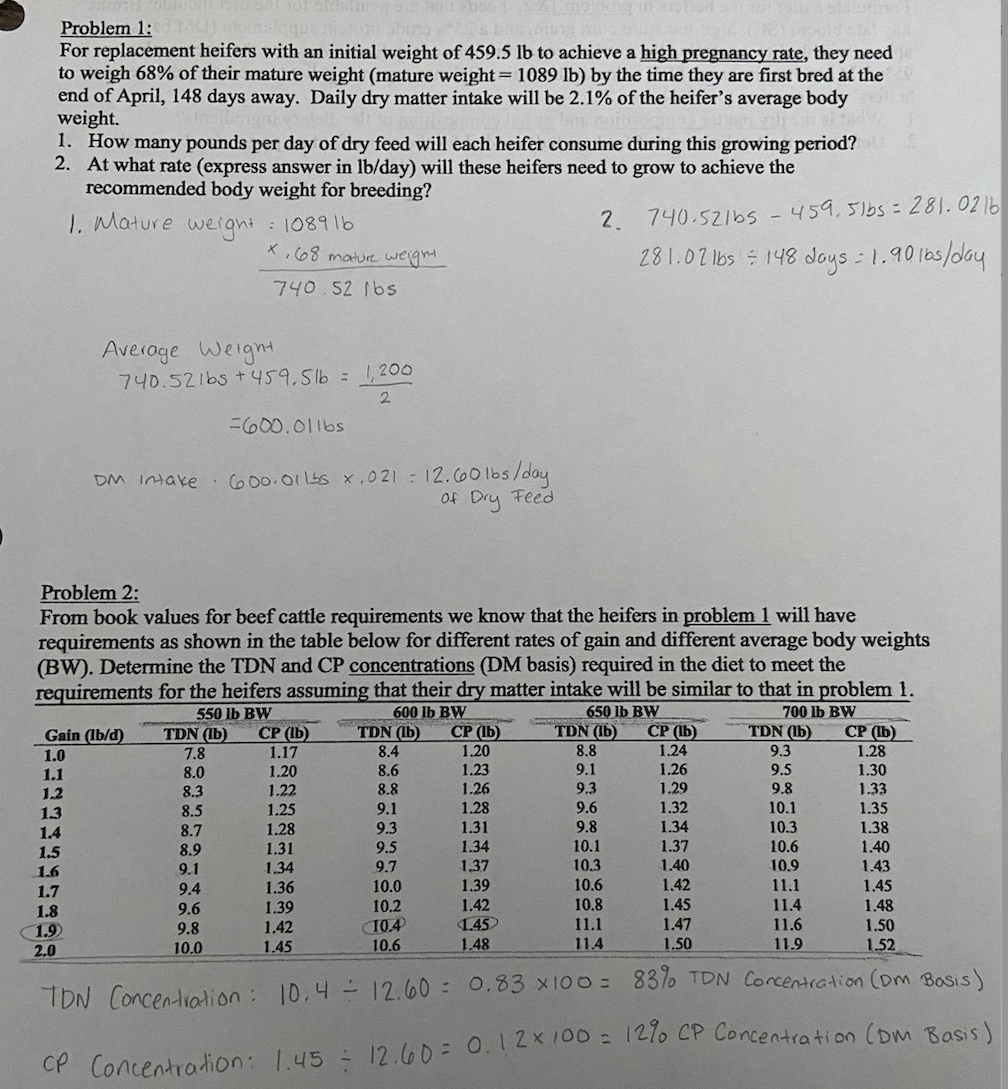 Problem 1:
For replacement heifers with an initial weight of 459.5 lb to achieve a high pregnancy rate, they need
to weigh 68% of their mature weight (mature weight = 1089 lb) by the time they are first bred at the
end of April, 148 days away. Daily dry matter intake will be 2.1% of the heifer's average body
weight.
1. How many pounds per day of dry feed will each heifer consume during this growing period?
2. At what rate (express answer in lb/day) will these heifers need to grow to achieve the
recommended body weight for breeding?
1. Mature weight : 1089 lb
x .68 mature weight
740.52 lbs
Average Weight
740.52 lbs + 459.5 lb = 1,200
2
=600.01 lbs
DM Intake : 600.01 Lbs x .021 = 12.60 lbs/day
of Dry Feed
2. 740.52 lbs - 459.5 lbs = 281.02 lb
281.02 lbs ÷ 148 days = 1.90 lbs/day
Problem 2:
From book values for beef cattle requirements we know that the heifers in problem 1 will have
requirements as shown in the table below for different rates of gain and different average body weights
(BW). Determine the TDN and CP concentrations (DM basis) required in the diet to meet the
requirements for the heifers assuming that their dry matter intake will be similar to that in problem 1.
550 lb BW 600 lb BW 650 lb BW 700 lb BW
Gain (lb/d) TDN (lb) CP (lb) TDN (lb) CP (lb) TDN (lb) CP (lb) TDN (lb) CP (lb)
1.0 7.8 1.17 8.4 1.20 8.8 1.24 9.3 1.28
1.1 8.0 1.20 8.6 1.23 9.1 1.26 9.5 1.30
1.2 8.3 1.22 8.8 1.26 9.3 1.29 9.8 1.33
1.3 8.5 1.25 9.1 1.28 9.6 1.32 10.1 1.35
1.4 8.7 1.28 9.3 1.31 9.8 1.34 10.3 1.38
1.5 8.9 1.31 9.5 1.34 10.1 1.37 10.6 1.40
1.6 9.1 1.34 9.7 1.37 10.3 1.40 10.9 1.43
1.7 9.4 1.36 10.0 1.39 10.6 1.42 11.1 1.45
1.8 9.6 1.39 10.2 1.42 10.8 1.45 11.4 1.48
1.9 9.8 1.42 10.4 1.45 11.1 1.47 11.6 1.50
2.0 10.0 1.45 10.6 1.48 11.4 1.50 11.9 1.52
TDN Concentration : 10.4 ÷ 12.60 = 0.83 x 100 = 83% TDN Concentration (Dm Basis)
CP Concentration: 1.45 ÷ 12.60 = 0.12 x 100 = 12% CP Concentration (Dm Basis)